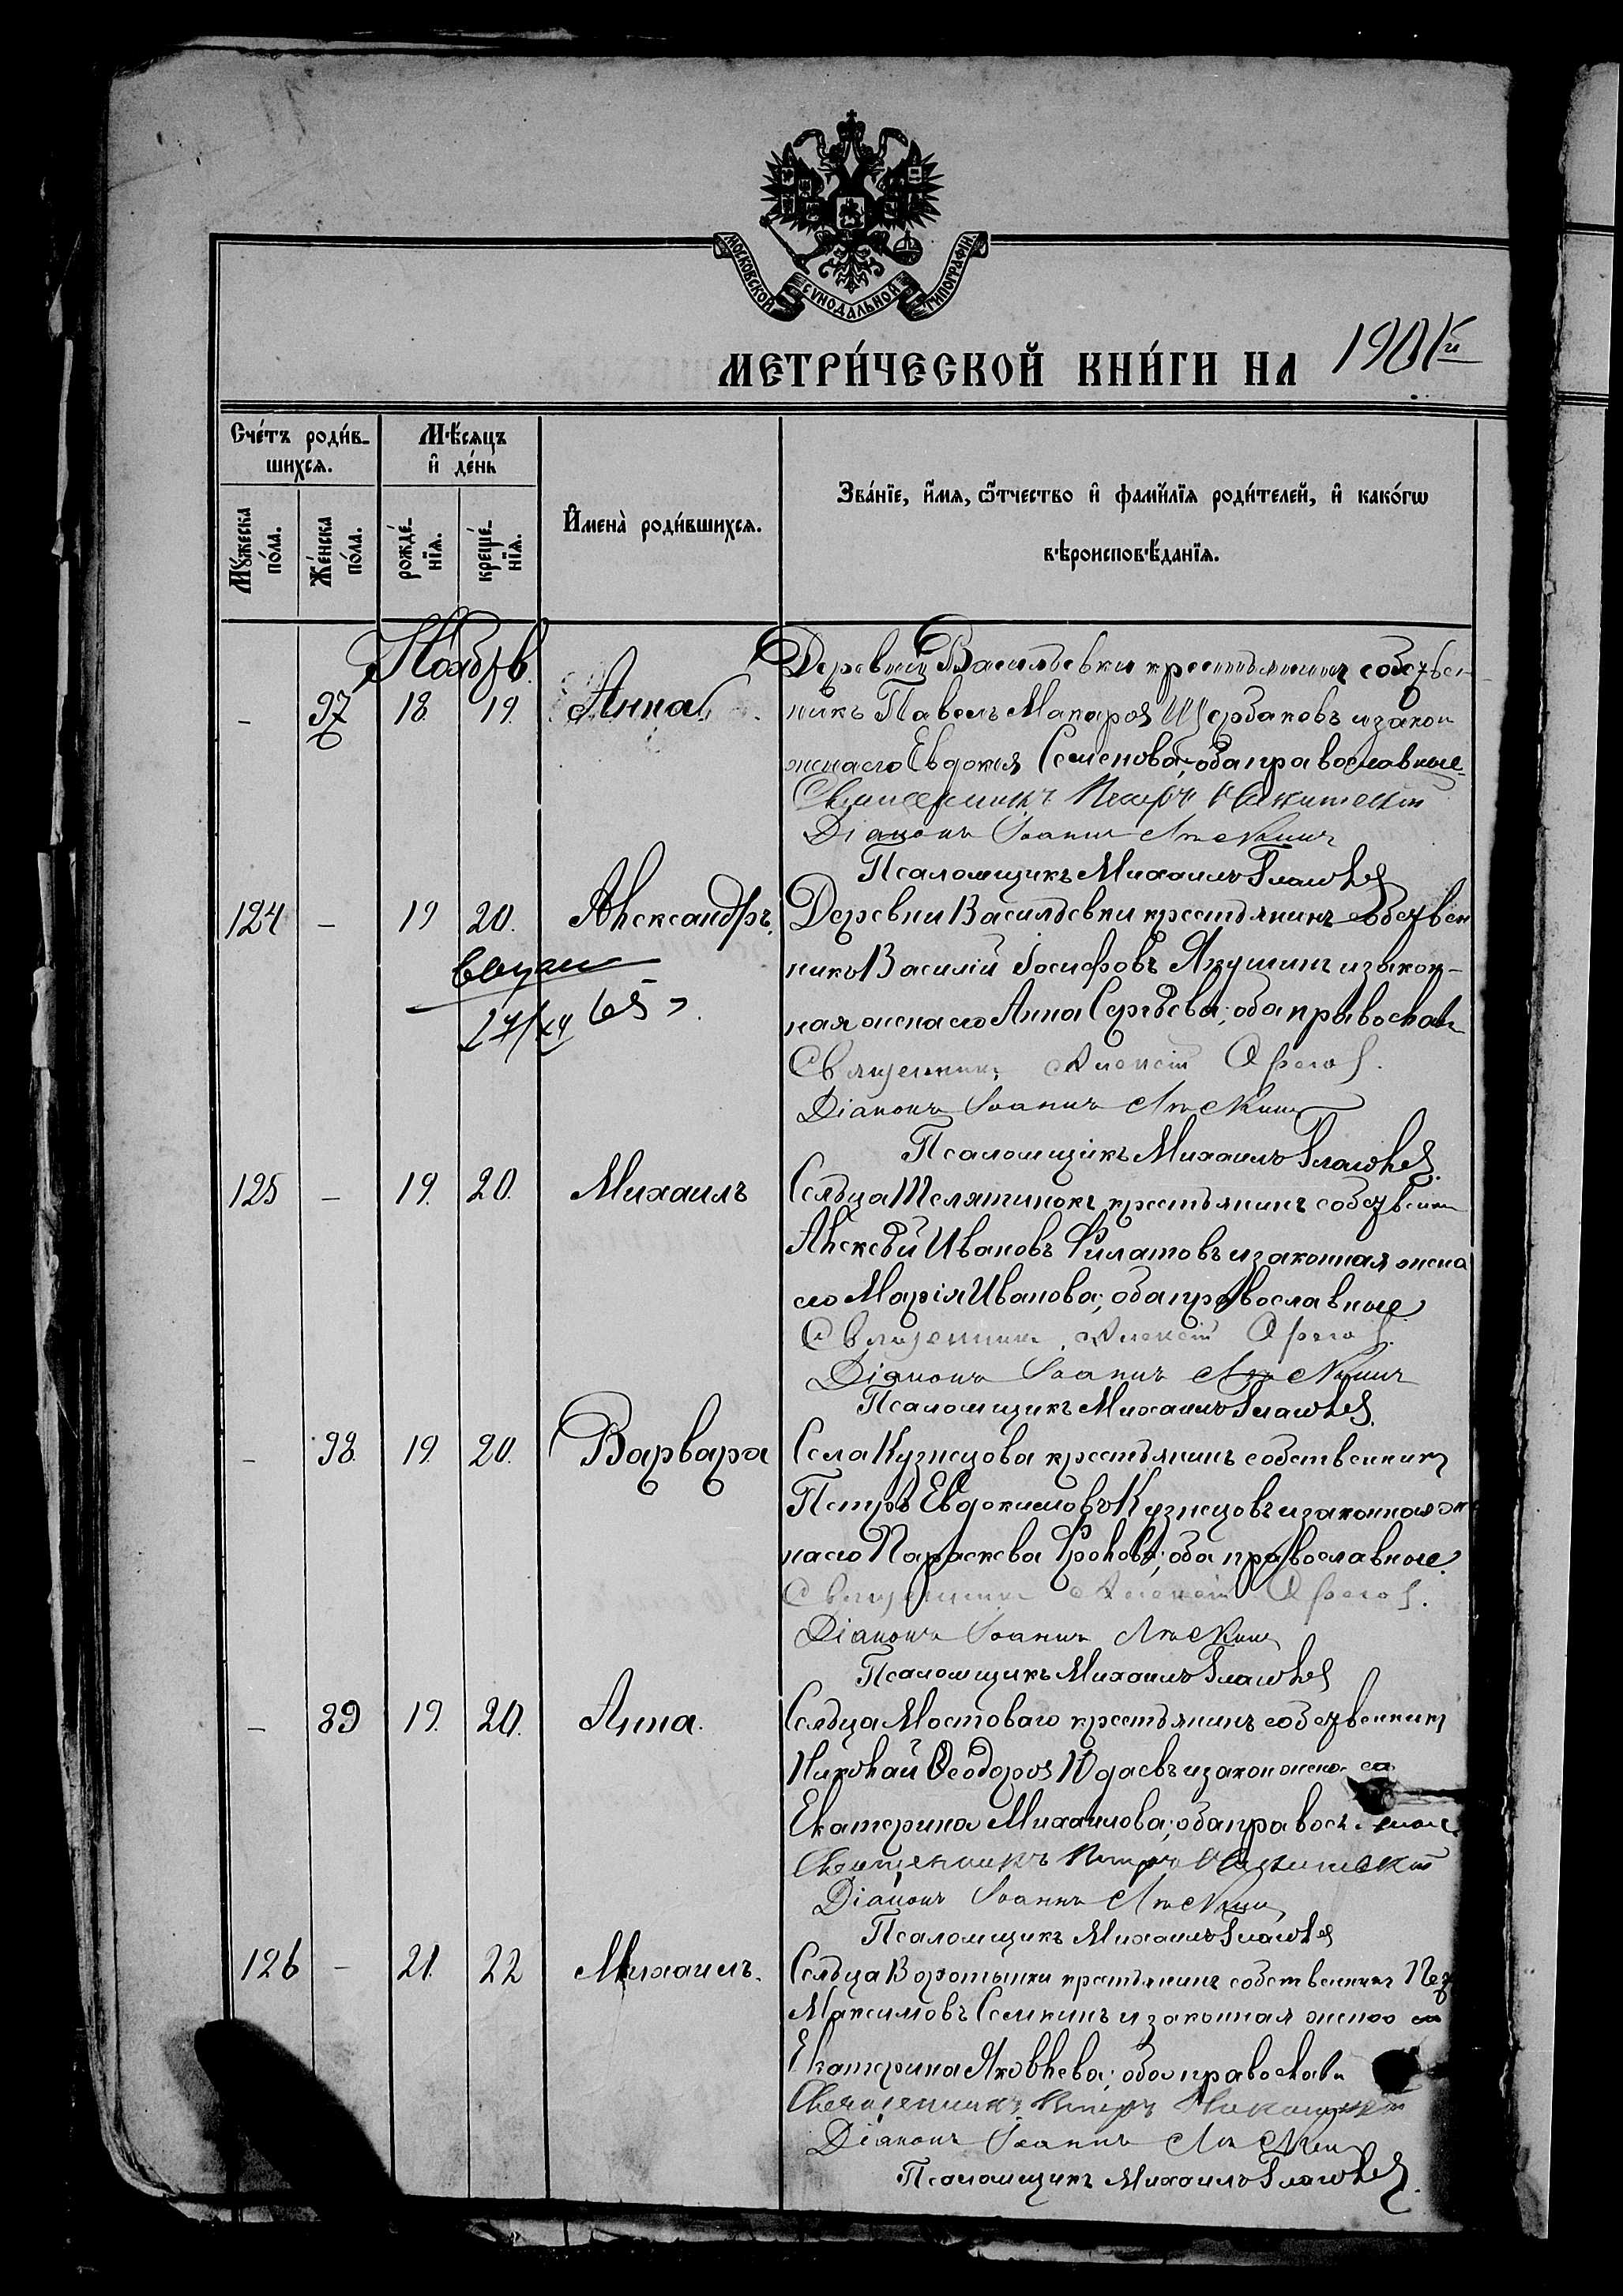 МОСКОВСКОЙ СѴНОДАЛЬНОЙ ТИПОГРАФІИ.
МЕТРИ́ЧЕСКОЙ КНИ́ГИ НА 1901
Сче́тъ роди́в-
шихсѧ.
Мѣ́сѧцъ
и҆ де́нь
И҆мена̀ роди́вшихсѧ.
Зва́нїе, и҆́мѧ, ѻ҆́тчество и҆ фами́лїѧ роди́телей, и҆ како́гѡ
вѣроисповѣ́данїѧ.
Мꙋ́жеска
по́ла.
Же́нска
по́ла.
рожде́-
нїѧ.
креще́-
нїѧ.
Ноября
- 97 18 19. Анна
Деревни Васильевки крестьянинъ собствен-
никъ Павелъ Макаровъ Щербаковъ и закон
жена его Евдокія Семенова; оба православные
Священникъ Петръ
Діаконъ Іоаннъ
Псаломщикъ Михаилъ
124 - 19 20. Александръ.
Деревни Васильевки крестьянинъ собствен
никъ Василій Іосифовъ Якушинъ и закон-
ная жена его Анна Сергѣева; оба православн
Священникъ Алексій
Діаконъ Іоаннъ
Псаломщикъ Михаилъ
125 - 19. 20. Михаилъ
Сельца Телятинокъ крестьянинъ собственни
Алексѣй Ивановъ Филатовъ и законная жена
его Марія Иванова; оба православные
Священникъ Алексій
Діаконъ Іоаннъ
Псаломщикъ Михаилъ
- 98. 19. 20. Варвара
Села Кузнецова крестьянинъ собственникъ
Петръ Евдокимовъ Кузнецовъ и законная же
на его Параскева Фролова; оба православные
Священникъ Алексій
Діаконъ Іоаннъ
Псаломщикъ Михаилъ
- 89 19. 20. Анна.
Сельца Мостоваго крестьянинъ собственникъ
Николай Ѳеодоровъ Юдаевъ и закон жена ег
Екатерина Михаилова; оба правосл
Священникъ Петръ
Діаконъ Іоаннъ
Псаломщикъ Михаилъ
126 - 21. 22 Михаилъ.
Сельца Воротынки крестьянинъ собственникъ
Максимовъ Семкинъ и законная жена ег
Екатерина Яковлева; оба православн
Священникъ Петръ
Діаконъ Іоаннъ
Псаломщикъ Михаилъ